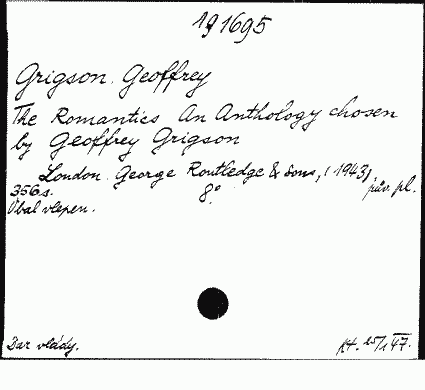 191695
Grigson, Geoffrey
The Romantics An Anthology chosen
by Geoffrey Grigson
London. George Routledge & Sons, (1943)
356 s. 8°. pův. pl.
Obal vlepen.
Dar vlády. Kt. 25/I 47.